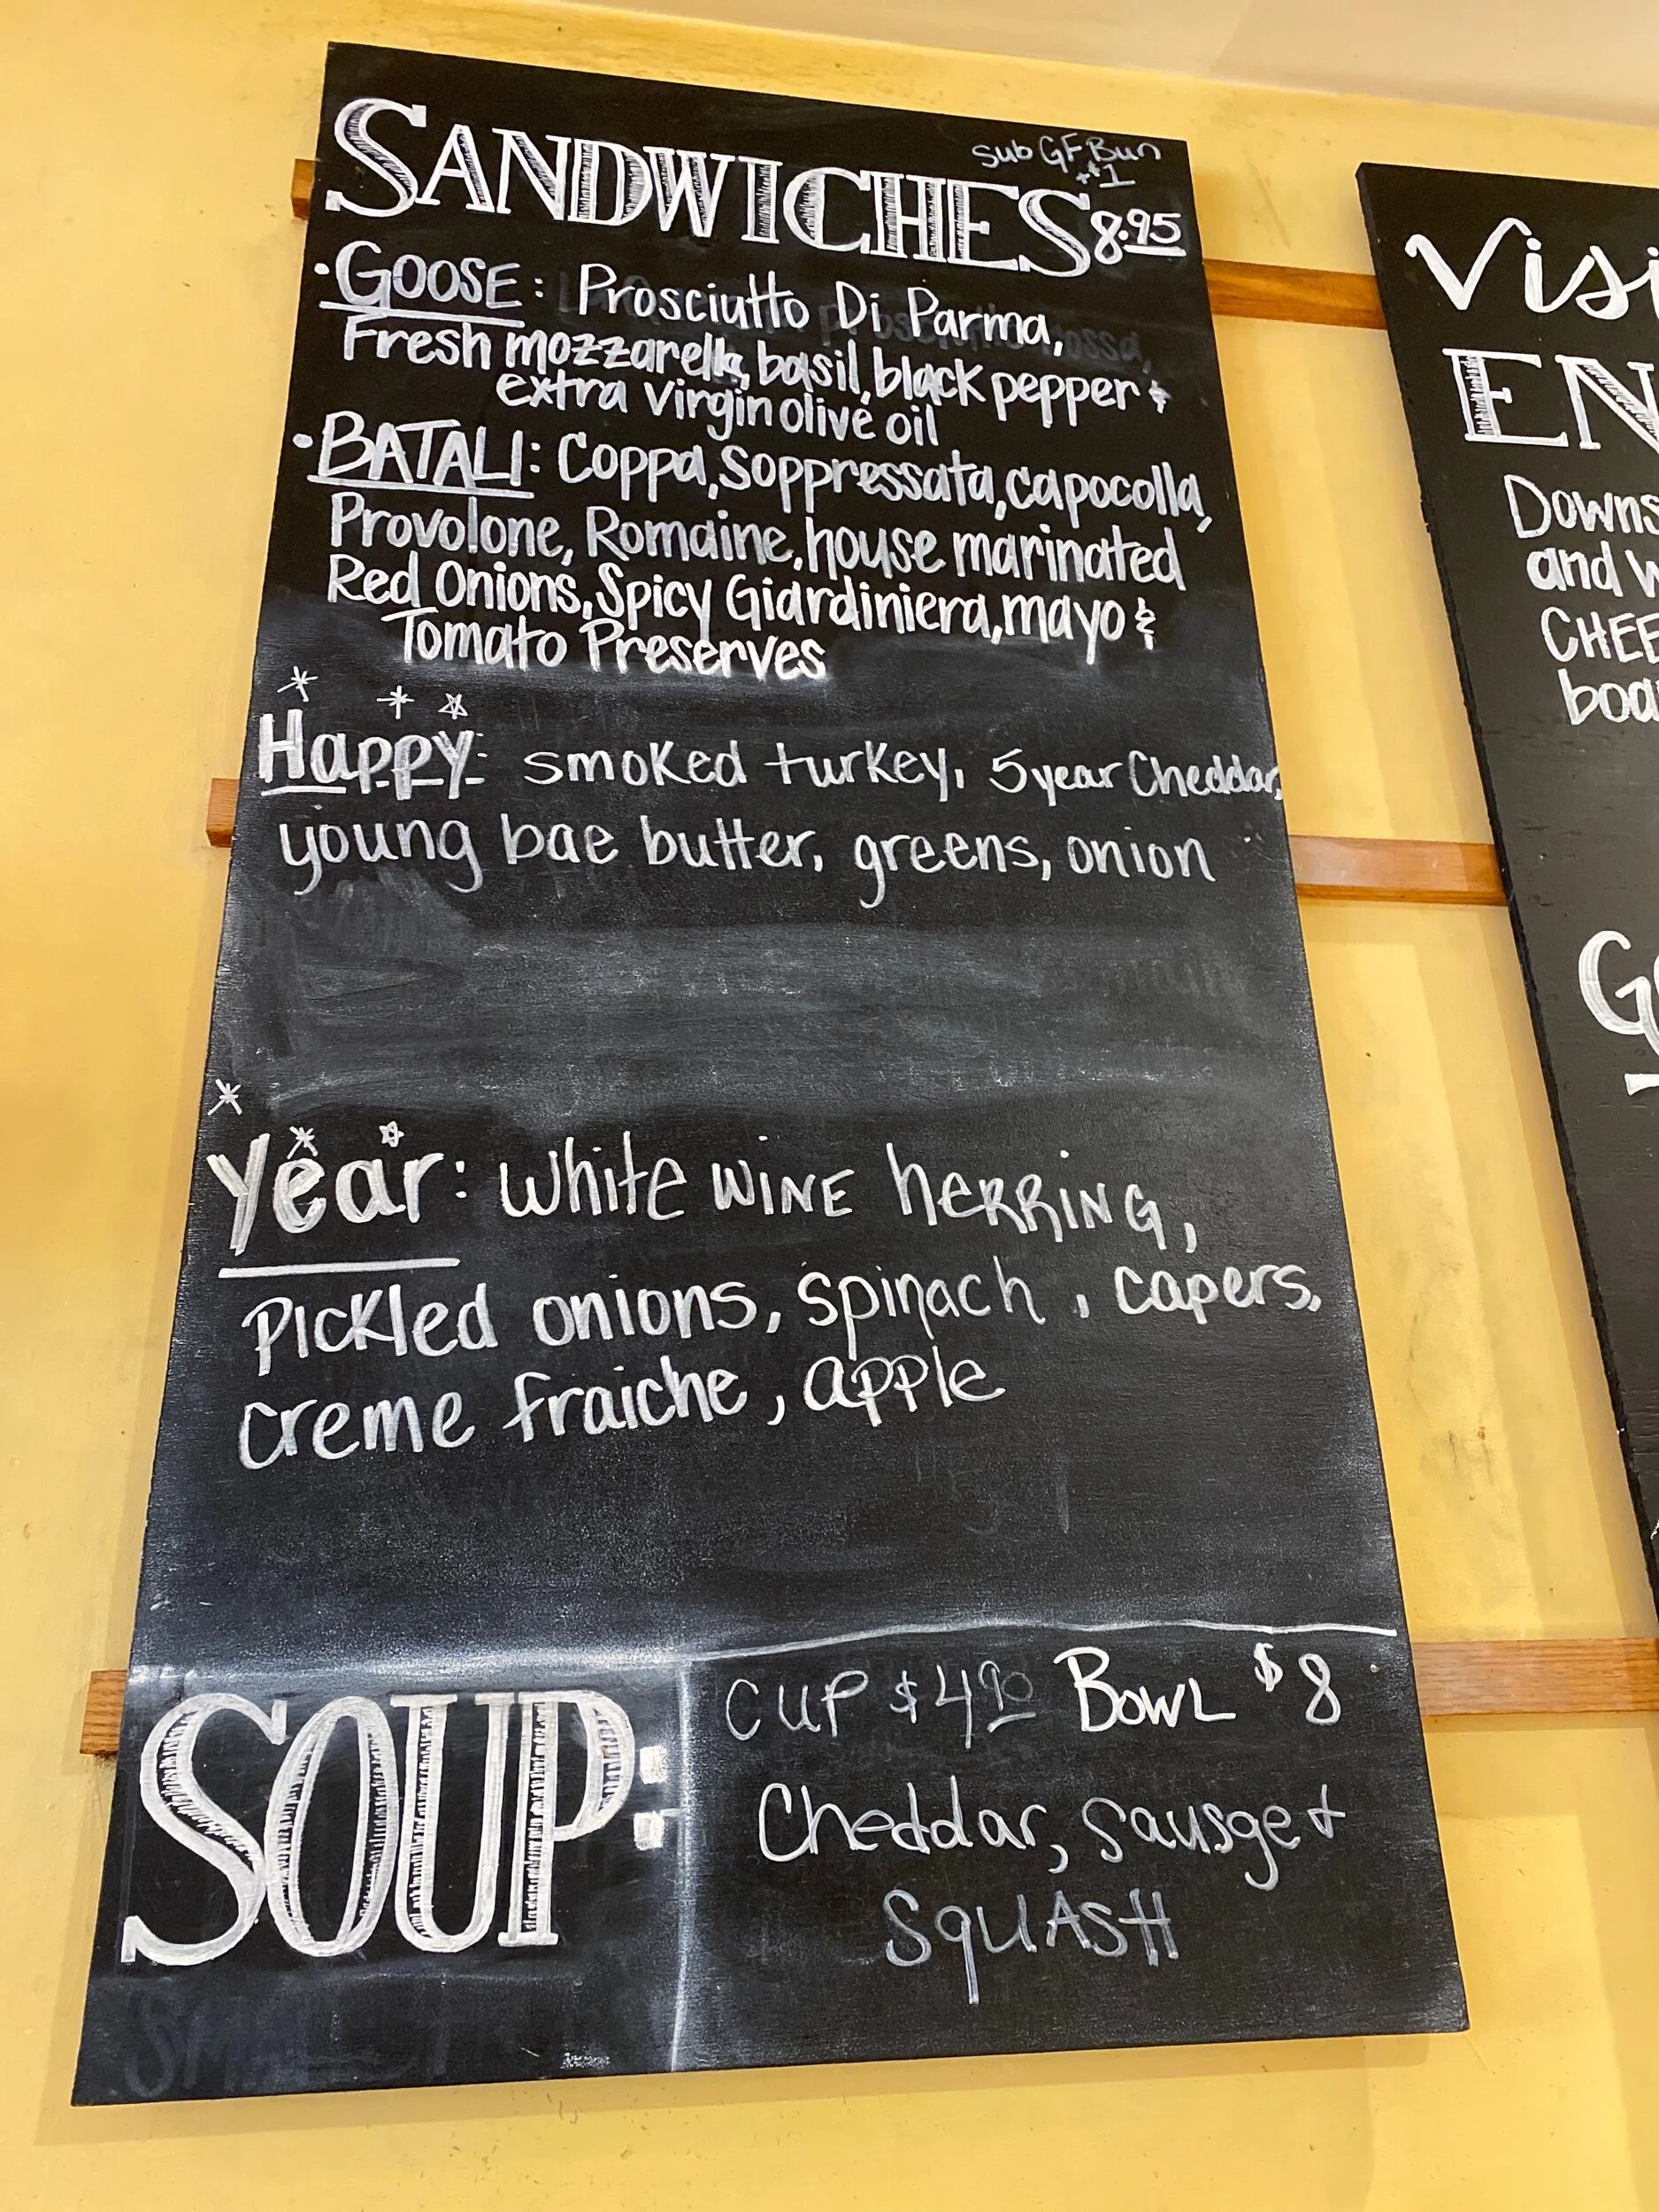 sub GF Bun
+$1
SANDWICHES 8.95
•GOOSE: Prosciutto Di Parma,
Fresh mozzarella, basil, black pepper &
extra virgin olive oil
•BATALI: Coppa, Soppressata, capocolla,
Provolone, Romaine, house marinated
Red Onions, Spicy Giardiniera, mayo &
Tomato Preserves
Happy: smoked turkey, 5 year Cheddar,
young bae butter, greens, onion
year: white wine herring,
Pickled onions, spinach, capers,
creme fraiche, apple
SOUP:
CUP $4.90 BOWL $8
Cheddar, Sausge &
SQUASH
Visi
EN
Downs
and w
CHEE
boa
G